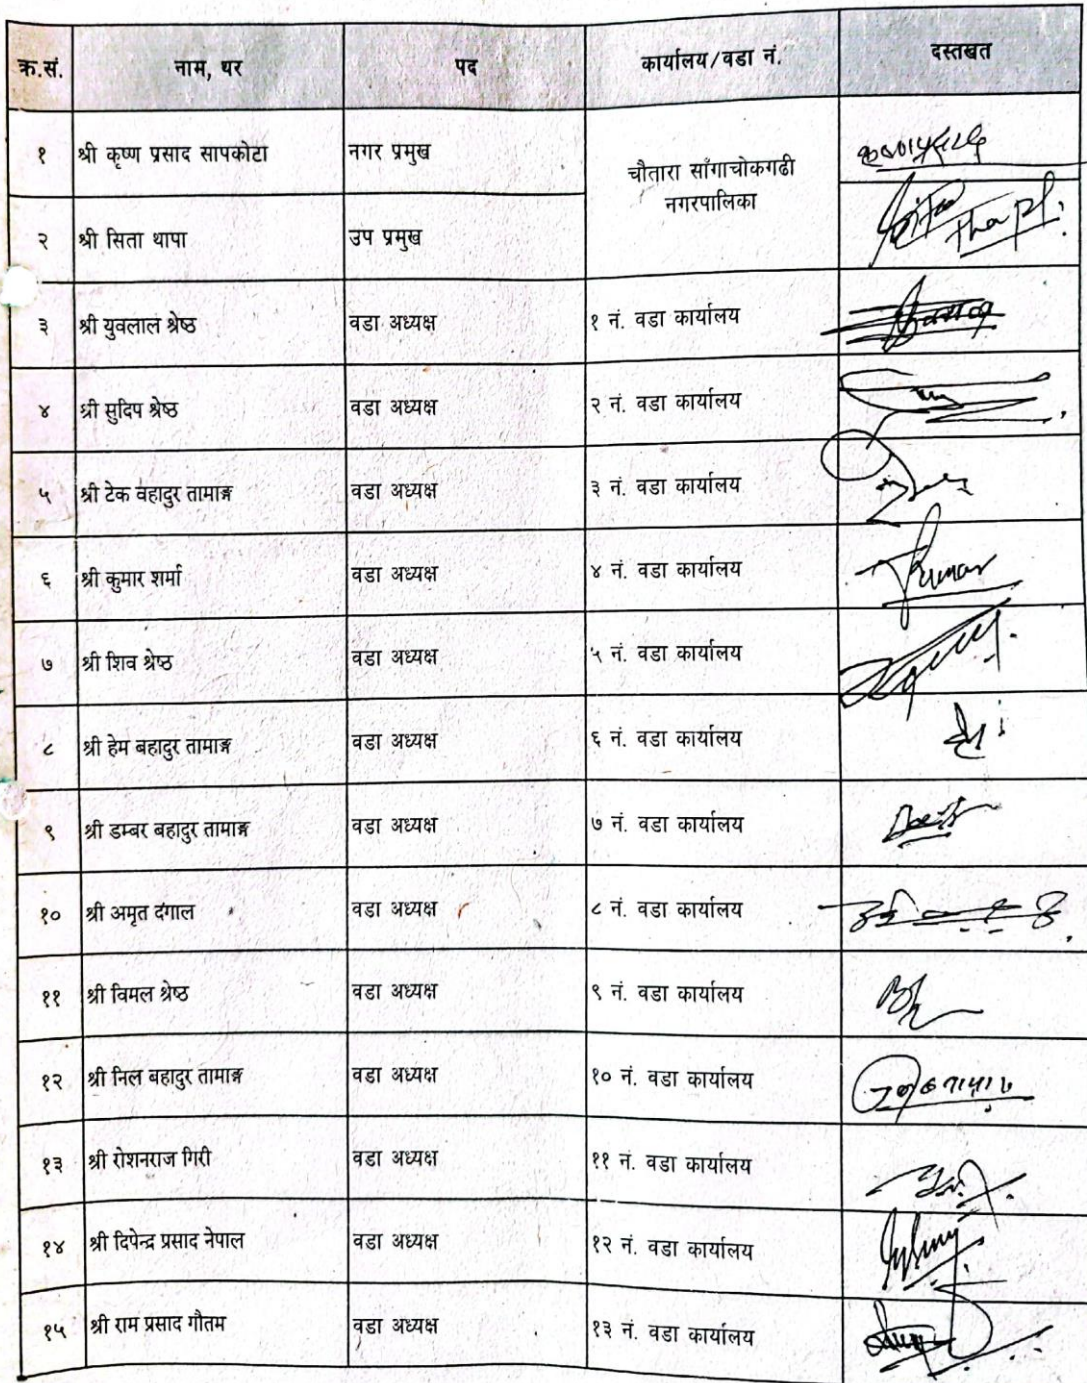 क्र.सं. नाम, थर पद कार्यालय/वडा नं. दस्तखत
१ श्री कृष्ण प्रसाद सापकोटा नगर प्रमुख चौतारा साँगाचोकगढी नगरपालिका कृष्णप्रसाद
२ श्री सिता थापा उप प्रमुख
३ श्री युवलाल श्रेष्ठ वडा अध्यक्ष १ नं. वडा कार्यालय
४ श्री सुदिप श्रेष्ठ वडा अध्यक्ष २ नं. वडा कार्यालय
५ श्री टेक वहादुर तामाङ्ग वडा अध्यक्ष ३ नं. वडा कार्यालय
६ श्री कुमार शर्मा वडा अध्यक्ष ४ नं. वडा कार्यालय Kumar
७ श्री शिव श्रेष्ठ वडा अध्यक्ष ५ नं. वडा कार्यालय
८ श्री हेम बहादुर तामाङ्ग वडा अध्यक्ष ६ नं. वडा कार्यालय
९ श्री डम्बर बहादुर तामाङ्ग वडा अध्यक्ष ७ नं. वडा कार्यालय
१० श्री अमृत दंगाल वडा अध्यक्ष ८ नं. वडा कार्यालय
११ श्री विमल श्रेष्ठ वडा अध्यक्ष ९ नं. वडा कार्यालय
१२ श्री निल बहादुर तामाङ्ग वडा अध्यक्ष १० नं. वडा कार्यालय
१३ श्री रोशनराज गिरी वडा अध्यक्ष ११ नं. वडा कार्यालय
१४ श्री दिपेन्द्र प्रसाद नेपाल वडा अध्यक्ष १२ नं. वडा कार्यालय
१५ श्री राम प्रसाद गौतम वडा अध्यक्ष १३ नं. वडा कार्यालय